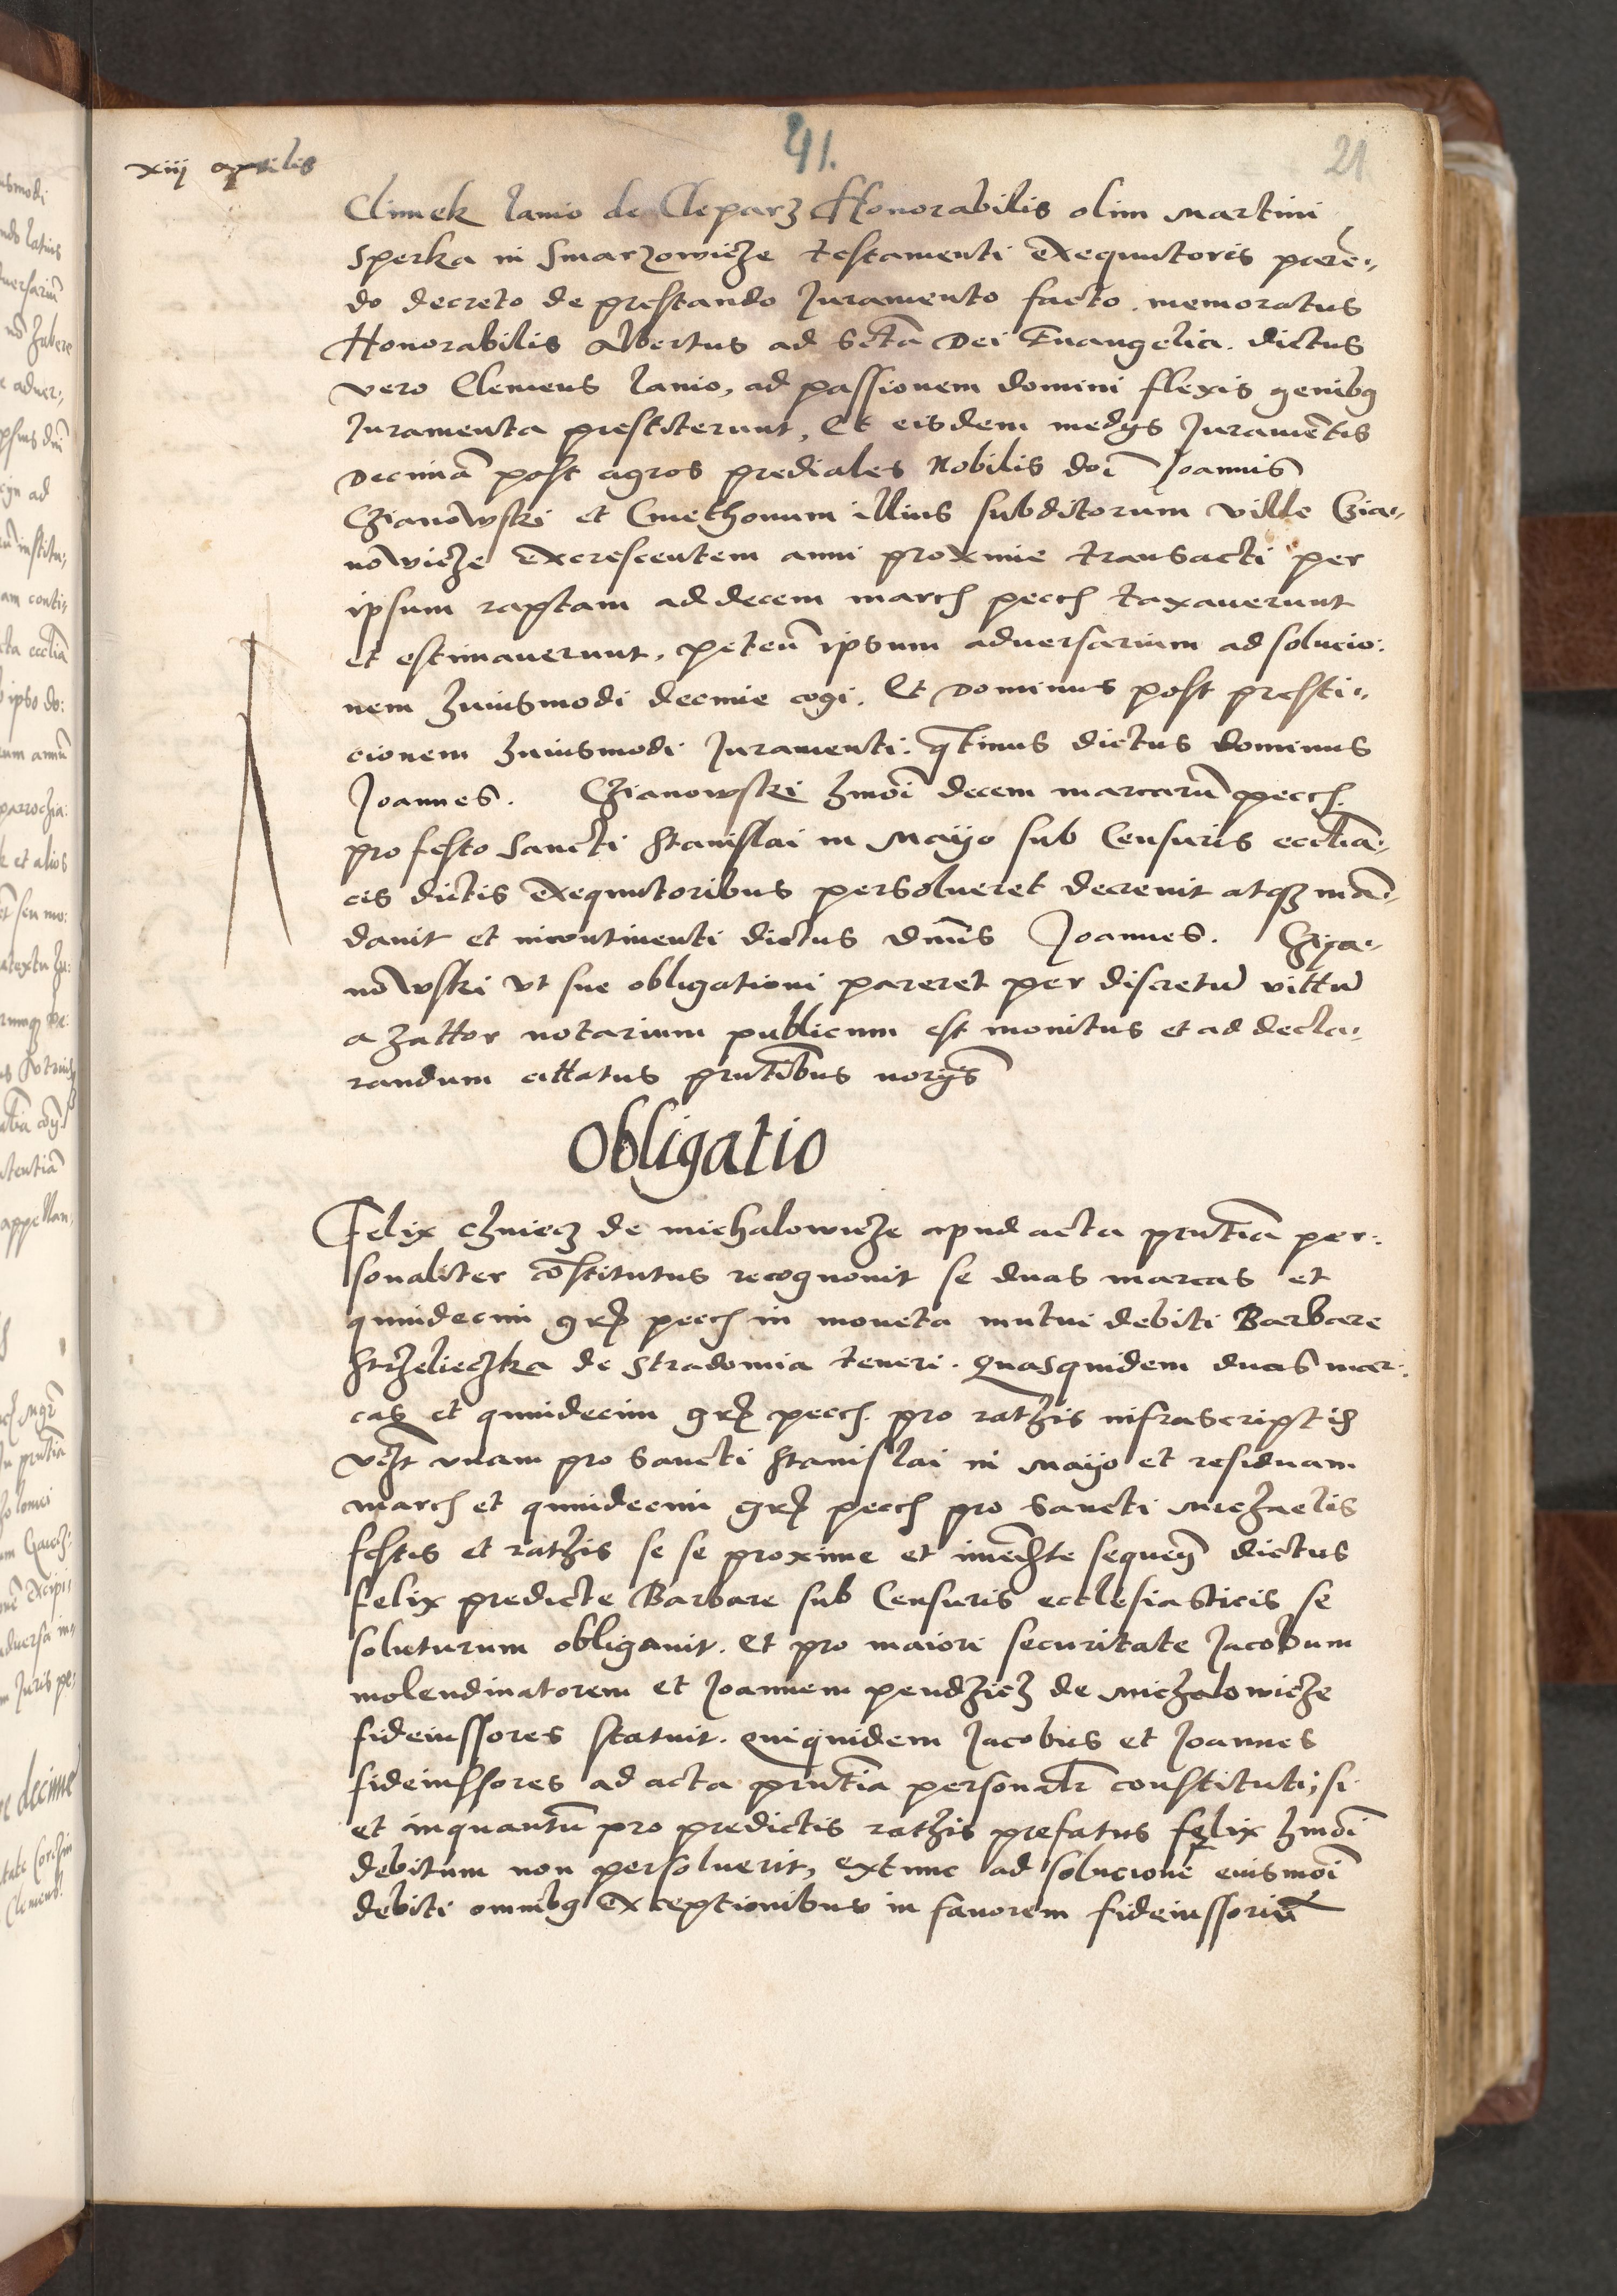 41.
21
xiij aprilis
Climek lanio de Cleparz Honorabilis olim Martini
Sperka in Smarzowicze testamenti exequutoris paren-
do decreto de prestando Juramento facto. memoratus
Honorabilis Albertus ad Sctā Dei Euangelia. dictus
vero Clemens lanio, ad passionem domini flexis genibꝫ
Juramenta prestiterunt, Et eisdem medijs Juramētis
Decimā post agros prediales Nobilis doī Joannis
Czianowski et Cmethonum illius subditorum ville Czia-
nowicze excrescentem anni proxime transacti per
ipsum raptam ad decem march pecch taxauerunt
et estimauerunt, peteñ ipsum aduersarium ad solucio:
nem huiusmodi decime cogi. Et Dominus post presti-
cionem huiusmodi Juramenti. qtinus dictus dominus
Joannes. Czianowski hmōi decem marcarū pecch.
pro festo Sancti Stanislai in Mayo sub Censuris eccliā-
cis dictis exequutoribus persolueret decreuit atqꝫ mā-
dauit et incontinenti dictus dnūs Joannes. Czya-
nowski vt sue obligationi pareret per discretū vittū
a Zattor notarium publicum est monitus et ad decla-
randum cittatus prntībus norijs
Obligatio
Felix Czniecz de michalowicze apud acta prntīa per:
sonaliter cōstitutus recognouit se duas marcas et
quindecim grꝭ pecch in moneta mutui debiti Barbare
Strzelieczka de Stradomia teneri. Quasquidem duas mar:
cas et quindecim grꝭ pecch. pro rathis infrascriptis
vczt vnam pro Sancti Stanislai in Mayo et residuam
march et quindecim grꝭ pecch pro Sancti Michaelis
festis et rathis se se proxime et imedte sequeñ dictus
felix predicte Barbare sub Censuris ecclesiasticis se
soluturum obligauit. et pro maiori securitate Jacobum
molendinatorem et Joannem pendzicz de Michalowicze
fideiussores statuit. Quiquidem Jacobus et Joannes
fideiussores ad acta prntīa personalr constituti; si
et inquantū pro predictis rathis prefatus felix hmōi
debitum non persoluerit, extunc ad solucionē eiusmōi
debiti omnibꝫ exceptionibus in fauorem fideiussoriū